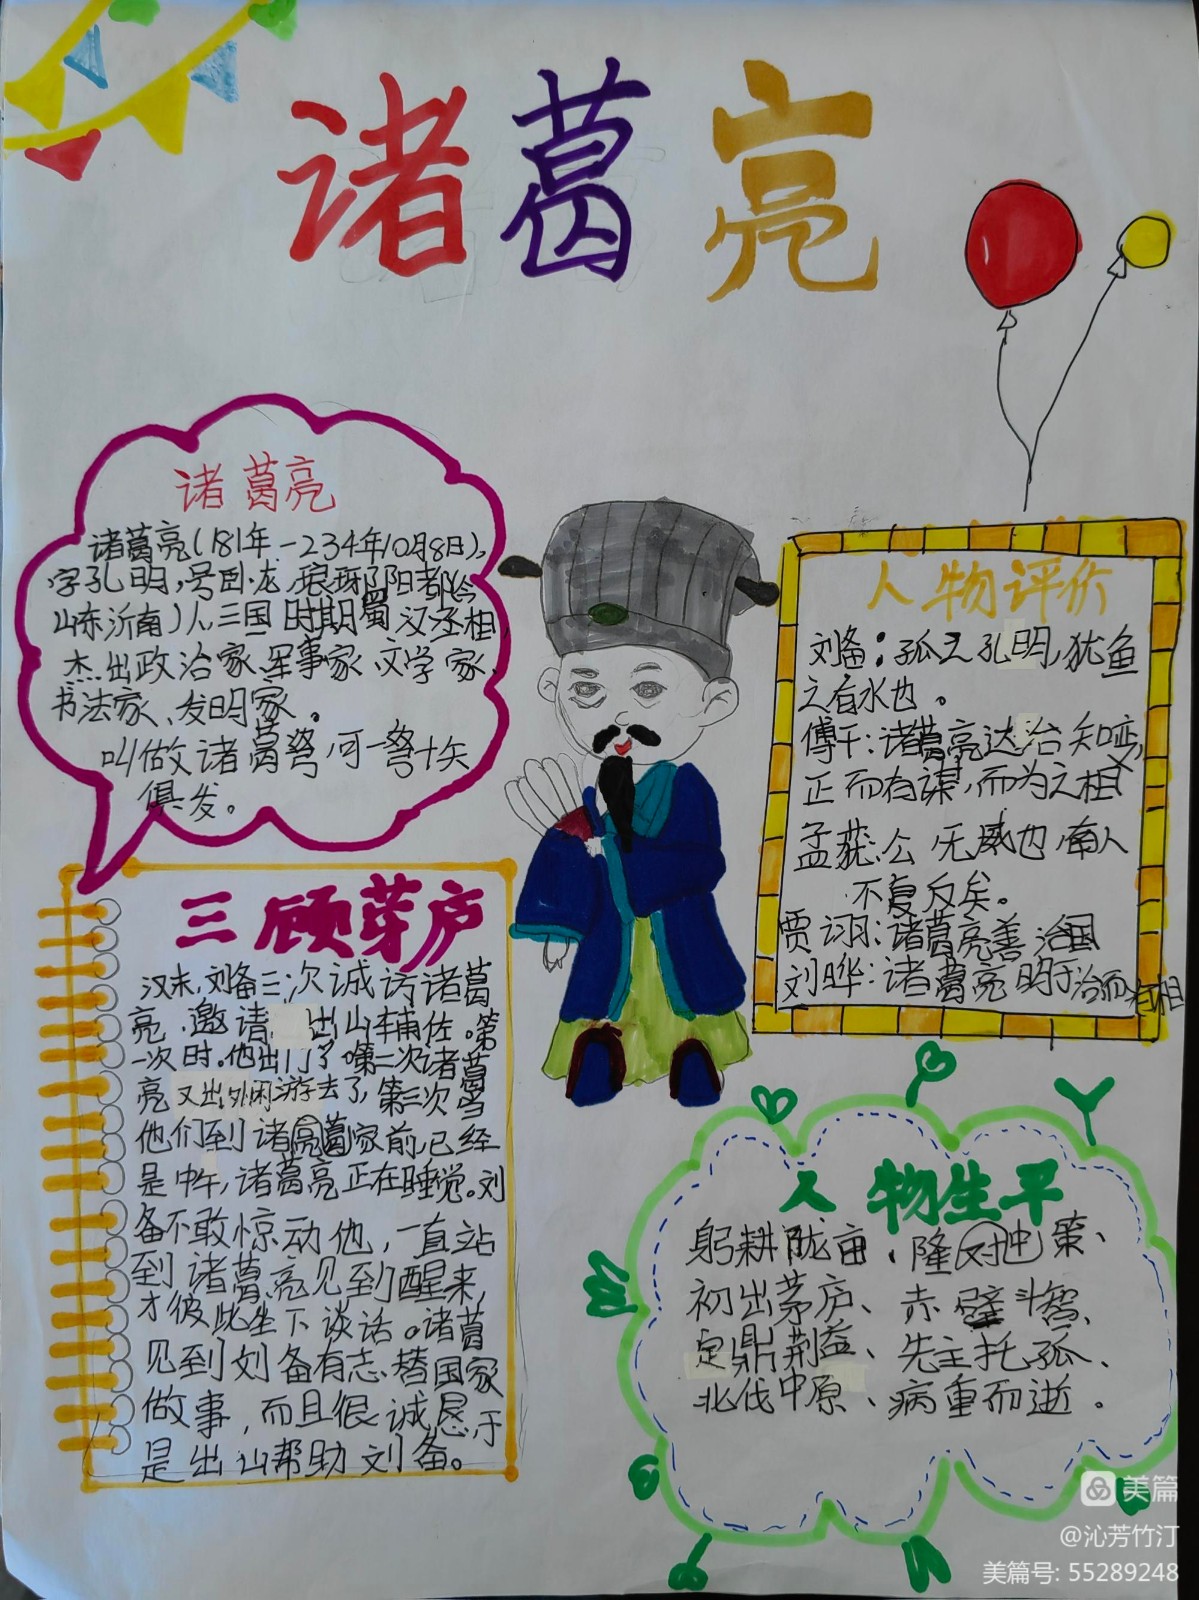 诸葛亮
诸葛亮
诸葛亮(181年-234年10月8日),
字孔明,号卧龙,琅琊阳都(今
山东沂南)人,三国时期蜀汉丞相,
杰出政治家、军事家、文学家、
书法家、发明家。
叫做诸葛弩,可一弩十矢
俱发。
三顾茅庐
汉末,刘备三次诚访诸葛
亮,邀请出山辅佐。第
一次时,他出门了,第二次诸葛
亮又出外闲游去了,第三次当
他们到诸葛家前,已经
是中午,诸葛亮正在睡觉。刘
备不敢惊动他,一直站
到诸葛亮见到醒来,
才彼此坐下谈话。诸葛
见到刘备有志替国家
做事,而且很诚恳,于
是出山帮助刘备。
人物评价
刘备:孤之孔明,犹鱼
之有水也。
傅干:诸葛亮达治知变,
正而有谋,而为之相
孟获:公无威也,南人
不复反矣。
贾诩:诸葛亮善治国
刘晔:诸葛亮明于治而为相
人物生平
躬耕陇亩、隆中对策、
初出茅庐、赤壁斗智、
定鼎荆益、先主托孤、
北伐中原、病重而逝。
美篇
@沁芳竹汀
美篇号: 55289248